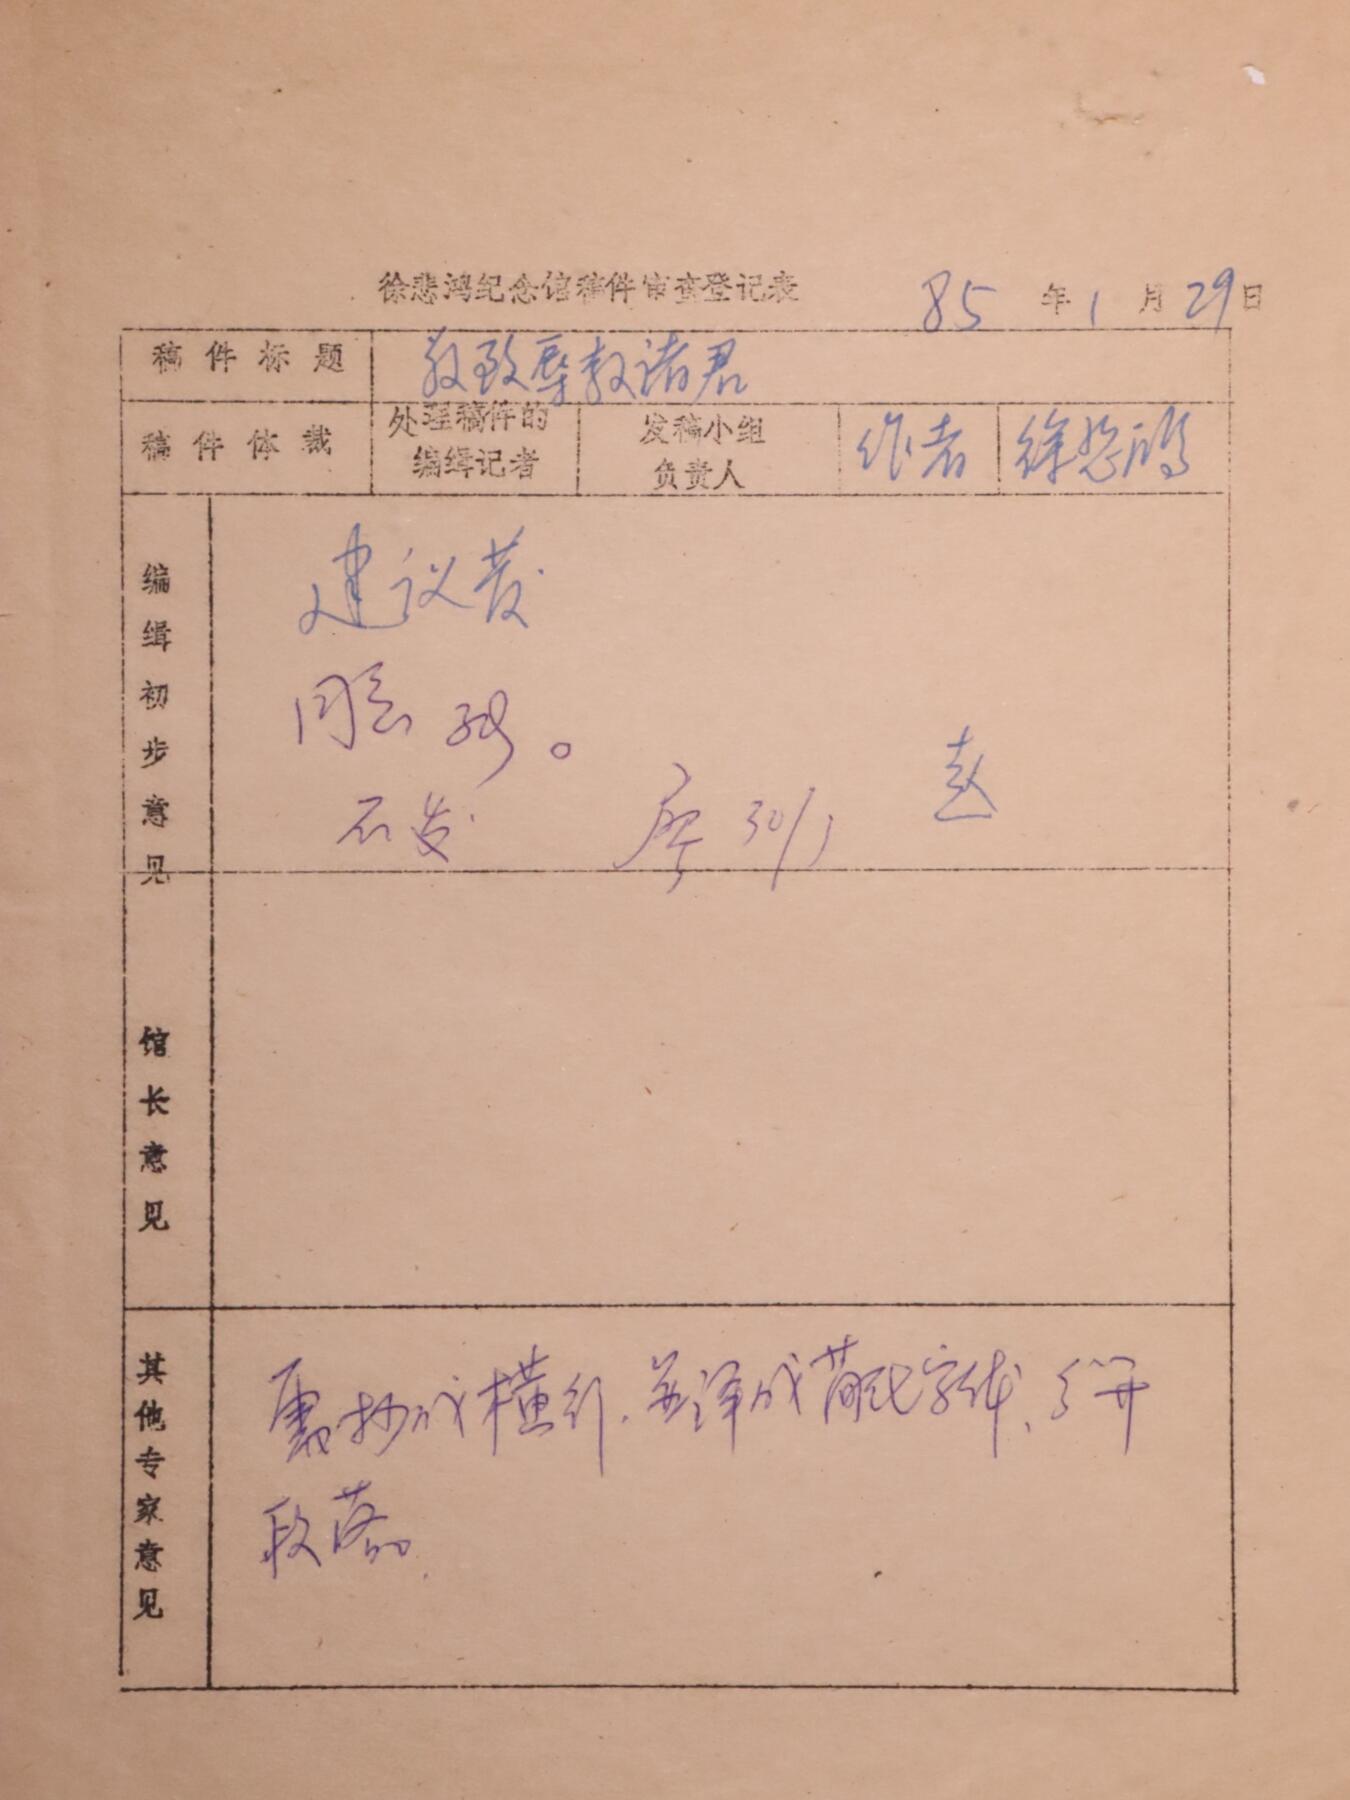 徐悲鸿纪念馆稿件审查登记表 85年1月29日
稿件标题 敬致辱教诸君
稿件体裁 处理稿件的编辑记者 发稿小组负责人 作者 徐悲鸿
编辑初步意见
建议发
同意
赵
不发 廖 30/1
馆长意见
其他专家意见
需抄成横行、并译成简化字体、分开
段落。